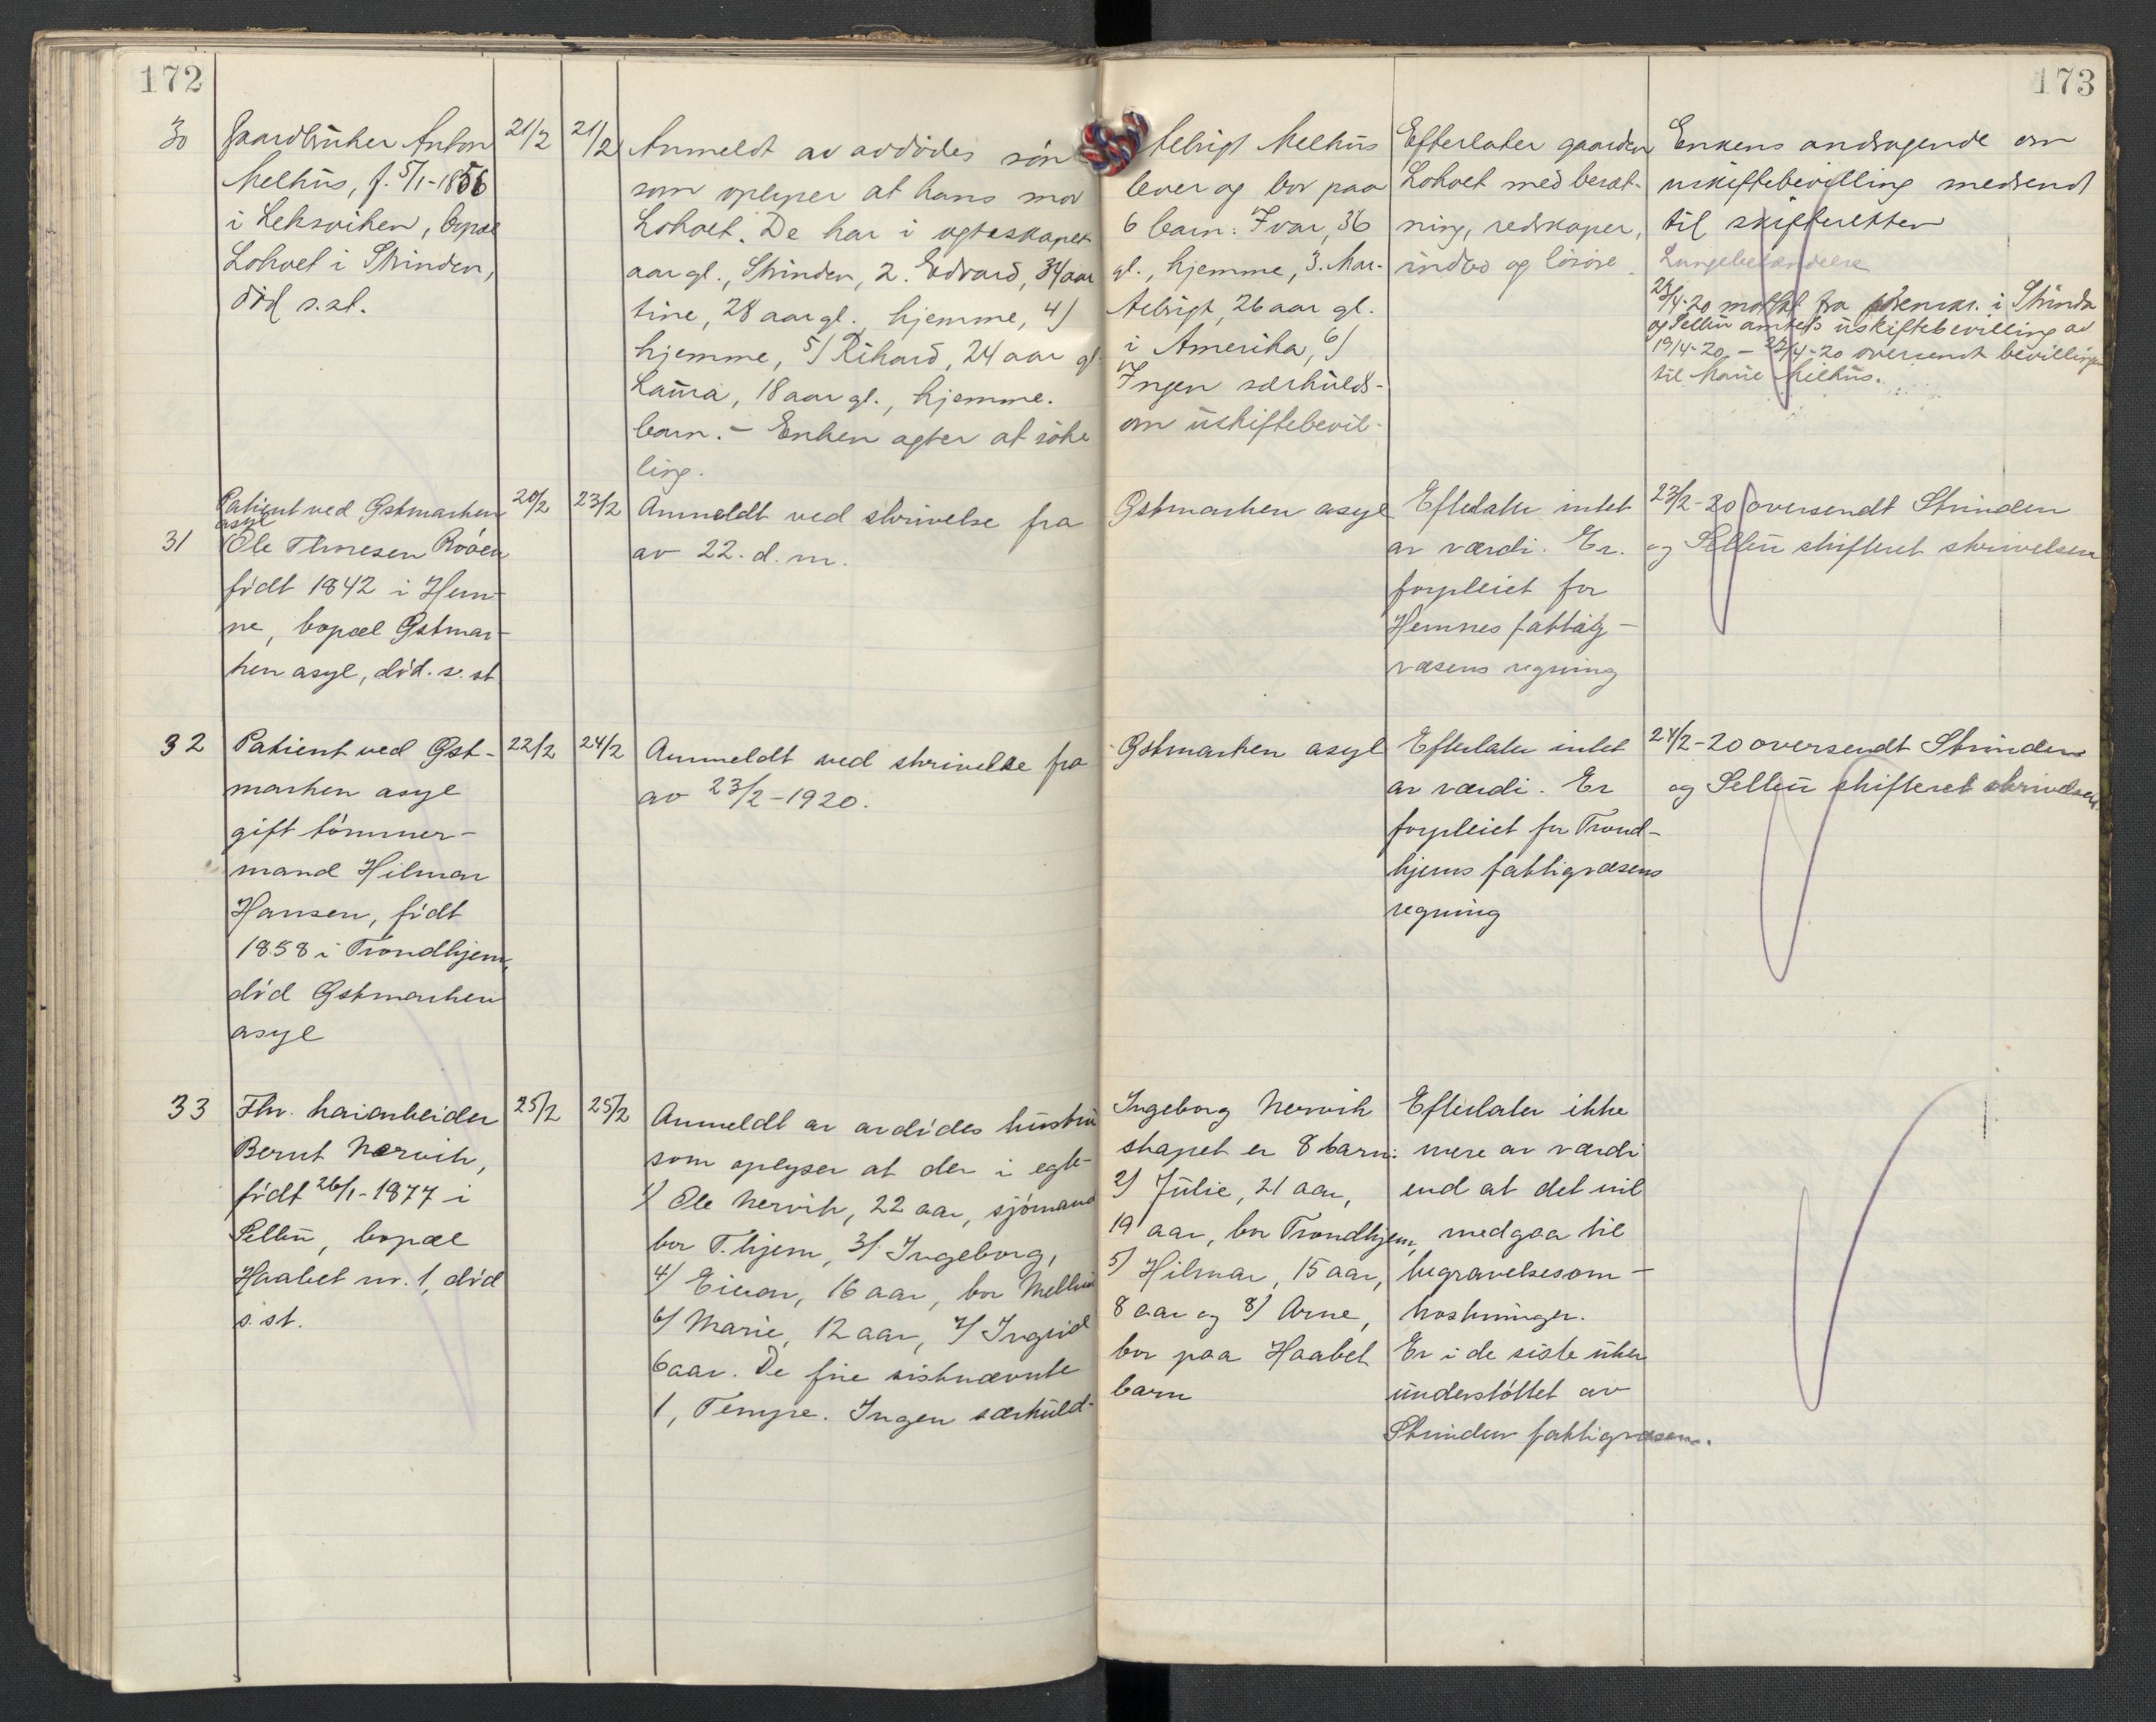 172
173
30
Gaardbruker Anton
Melhus, f. 5/1-1856
i Leksviken, bopæl
Lohvet i Strinden,
död s.st.
21/2
21/2
Anmeldt av avdödes sön Aelrigt Melhus
som oplyser at hans mor lever og bor paa
Lohvet. De har i egteskapet 6 barn: Ivar, 36
aar gl., Strinden, 2. Edvard, 34 aar gl., hjemme, 3. Mar-
tine, 28 aar gl. hjemme, 4) Aelrigt, 26 aar gl.
hjemme, 5) Rikard, 24 aar gl. i Amerika, 6)
Laura, 18 aar gl., hjemme. Ingen særkulds-
barn. – Enken agter at söke om uskiftebevil-
ling.
Efterlater gaarden
Lohvet med besæt-
ning, redskaper,
indbo og lösöre.
Enkens andragende om
uskiftebevilling medsendt
til skifteretten
Lungebetændelse
24/4-20 mottat fra sorenskr. i Strinda
og Selbu amtets uskiftebevilling av
19/4-20. – 24/4-20 oversendt bevillingen
til Marie Melhus.
31
Patient ved Östmarken
asyl
Ole Thoresen Roöen
födt 1842 i Hem-
ne, bopæl Östmar-
ken asyl, död. s. st.
20/2
23/2
Anmeldt ved skrivelse fra Östmarken asyl
av 22. d. m.
Efterlater intet
av værdi. Er
forpleiet for
Hemnes fattig-
væsens regning
23/2-20 oversendt Strinden
og Selbu skifteret skrivelsen
32
Patient ved Öst-
marken asyl
gift tömmer-
mand Hilmar
Hansen, födt
1858 i Trondhjem,
död Östmarken
asyl
22/2
24/2
Anmeldt ved skrivelse fra Östmarken asyl
av 23/2-1920.
Efterlater intet
av værdi. Er
forpleiet for Trond-
hjems fattigvæsens
regning
24/2-20 oversendt Strinden
og Selbu skifteret skrivelsen.
33
Fhv. kaiarbeider
Bernt Nervik,
födt 26/1-1877 i
Selbu, bopæl
Haabet nr. 1, död
s. st.
25/2
25/2
Anmeldt av avdödes hustru Ingeborg Nervik
som oplyser at der i egte- skapet er 8 barn:
1) Ole Nervik, 22 aar, sjömand 2) Julie, 21 aar,
bor T.hjem, 3) Ingeborg, 19 aar, bor Trondhjem,
4) Einar, 16 aar, bor Melhus 5) Hilmar, 15 aar,
6) Marie, 12 aar, 7) Ingrid 8 aar og 8) Arne,
6 aar. De fire sistnævnte bor paa Haabet
1, Tempe. Ingen særkuld- barn
Efterlater ikke
mere av værdi
end at det vil
medgaa til
begravelsesom-
kostninger.
Er i de siste uker
understöttet av
Strinden fattigvæsen.